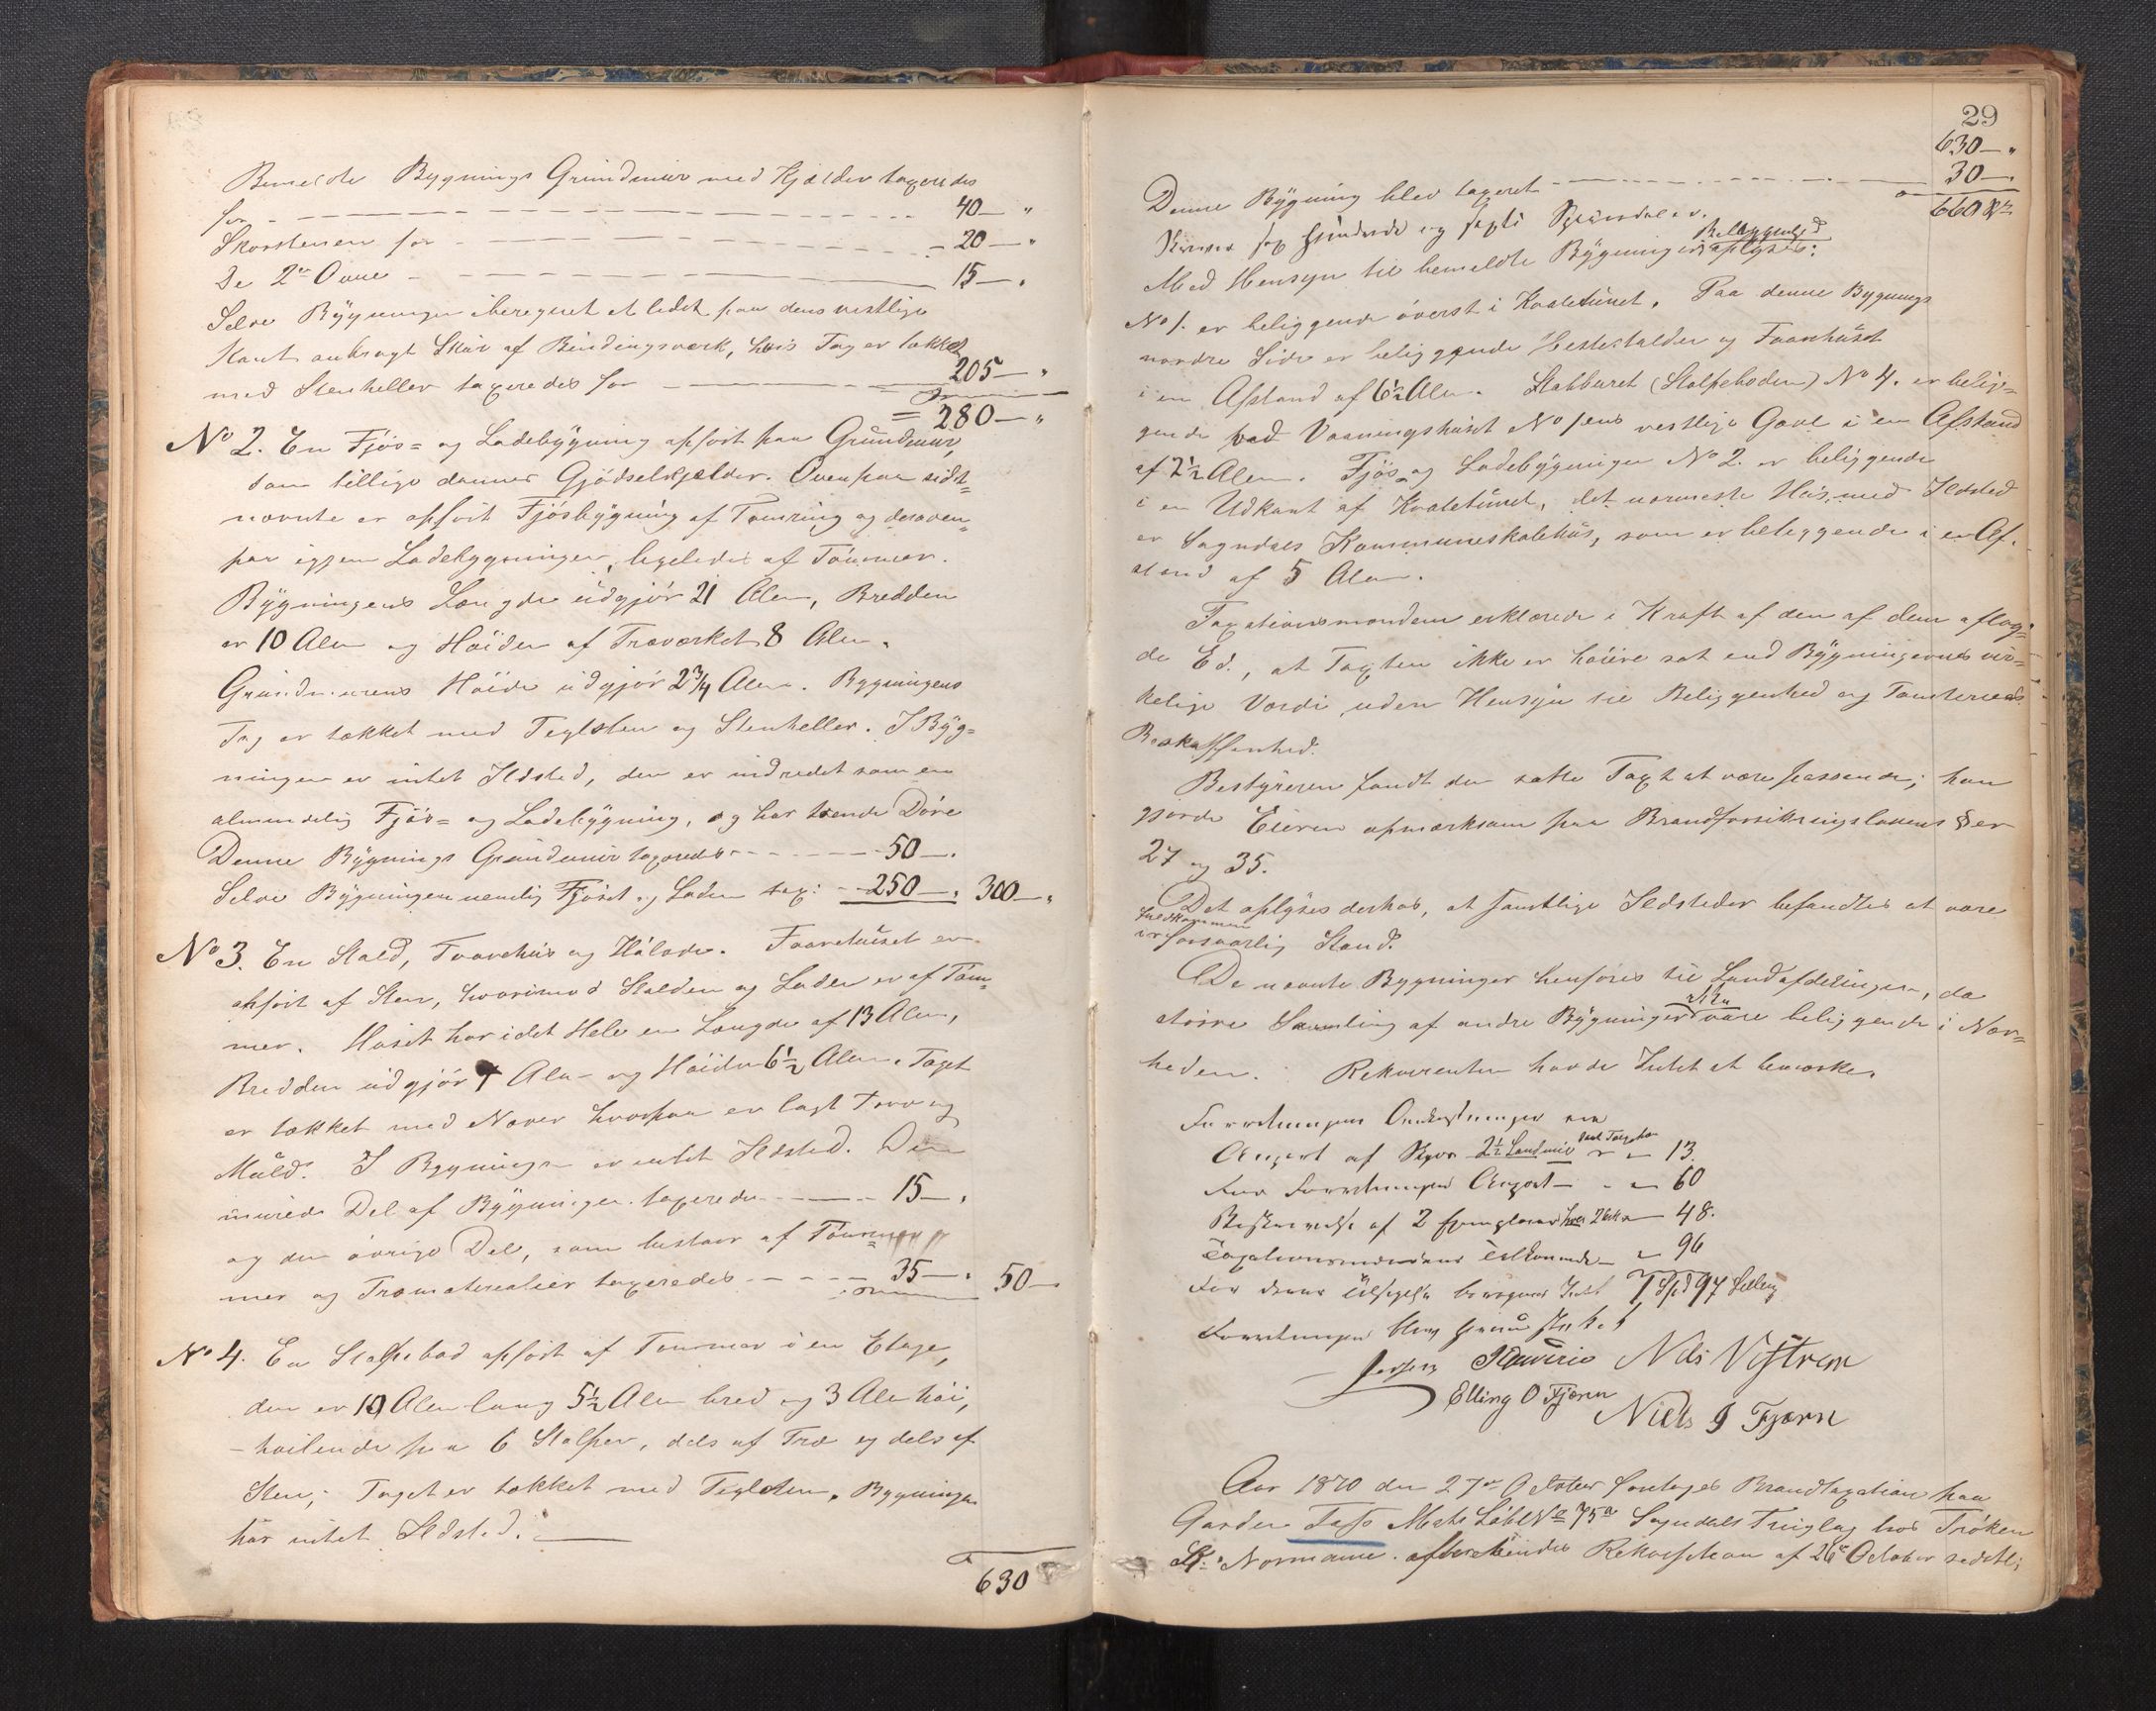 Bemeldte Bygnings Grundmur med Kjælder taxeredes
for - - - 40 — "
Skorstenen for - - - 20 — "
De 2de Ovne - - - 15 — "
Selve Bygningen iberegnet et lidet paa dens vestlige
Kant anbragt Skur af Bindingsværk, hvis Tag er tækket
med Stenheller taxeredes for — 205 — "
= 280 — "
No 2. En Fjös= og Ladebygning opfört paa Grundmur,
som tillige danner Gjödselkjælder. Ovenpaa sidst=
nævnte er opfört Fjösbygning af Tömring og desoven=
paa igjen Ladebygningen, ligeledes af Tömmer.
Bygningens Længde udgjör 21 Alen, Bredden
er 10 Alen og Höiden af Træværket 8 Alen.
Grundmurens Höide udgjör 2 3/4 Alen. Bygningens
Tag er tækket med Teglsten og Stenheller. I Byg=
ningen er intet Ildsted, den er indredet som en
almindelig Fjös= og Ladebygning, og har tvende Döre
Denne Bygnings Grundmur taxeredes - - - 50 — "
Selve Bygningen nemlig Fjöset og Laden tax: - - 250 — " 300 — "
No 3. En Stald, Faarehus og Hölade. Faarehuset er
opfört af Sten, hvorimod Stalden og Laden er af Töm=
mer. Huset har i det Hele en Længde af 13 Alen,
Bredden udgjör 7 Alen og Höiden 6 1/2 Alen. Taget
er tækket med Næver hvorpaa er lagt Törv og
Muld. I Bygningen er intet Ildsted. Den
murede Del af Bygningen taxeredes — 15 — "
og den övrige Del, som bestaar af Töm=
mer og Træmaterialier taxeredes - - - 35 — " 50 —
No 4. En Stolpebod opfört af Tömmer i en Etage,
den er 10 Alen lang 5 1/2 Alen bred og 3 Alen höi,
- hvilende paa 6 Stolper, dels af Træ og dels af
Sten; Taget er tækket med Teglsten. Bygningen
har intet Ildsted. —
630
29
630 — "
Denne Bygning blev taxeret - - - 30 — "
660 Spd
Skriver sex hundrede og sexti Speciedaler.
Med Hensyn til bemeldte Bygningers Beliggenhed oplyses:
No 1. er beliggende överst i Kvaletunet. Paa denne Bygnings
nordre Side er beliggende Hestestalden og Faarehuset
i en Afstand af 6 1/2 Alen. Stabburet (Stolpeboden) No 4. er belig=
gende ved Vaaningshuset No 1ens vestlige Gavl i en Afstand
af 2 1/2 Alen. Fjös og Ladebygningen No 2. er beliggende
i en Udkant af Kvaletunet, det nærmeste Hus med Ildsted
er Sogndals Kommuneskolehus, som er beliggende i en Af=
stand af 5 Alen.
Taxationsmændene erklærede i Kraft af den af dem aflag=
de Ed, at Taxten ikke er höiere sat end Bygningernes vir=
kelige Værdi uden Hensyn til Beliggenhed og Tomternes
Beskaffenhed.
Bestyreren fandt den satte Taxt at være passende; han
gjorde Eieren opmærksom paa Brandforsikringslovens §er
27 og 35.
Det oplyses derhos, at samtlige Ildsteder befandtes at være
i fuldkommen forsvarlig Stand.
De nævnte Bygninger henföres til Landafdelingen, da
större Samling af andre Bygninger ikke vare beliggende i Nær=
heden. Rekvirenten havde Intet at bemærke.
Forretningens Omkostninger ere
af Skyds 2 1/2 Landmiil " — 13.
For Forretningen — — 60
Beskrivelse af 2 Exemplarer hver 24 sk — 48.
Taxationsmændenes Tilkommende — 96
For denne beregnes Intet 1 Spd 97 Skilling
Forretningen blev herved sluttet
Nils Vestrem
Elling O Fjærn
Niels J Fjærn
Aar 1870 den 27de October foretoges Brandtaxation paa
Gaarden Foss Matr Löbe No 75a Sogndals Tinglag hos Fröken
Normann efter hendes Rekvisition af 26de October sidstl: